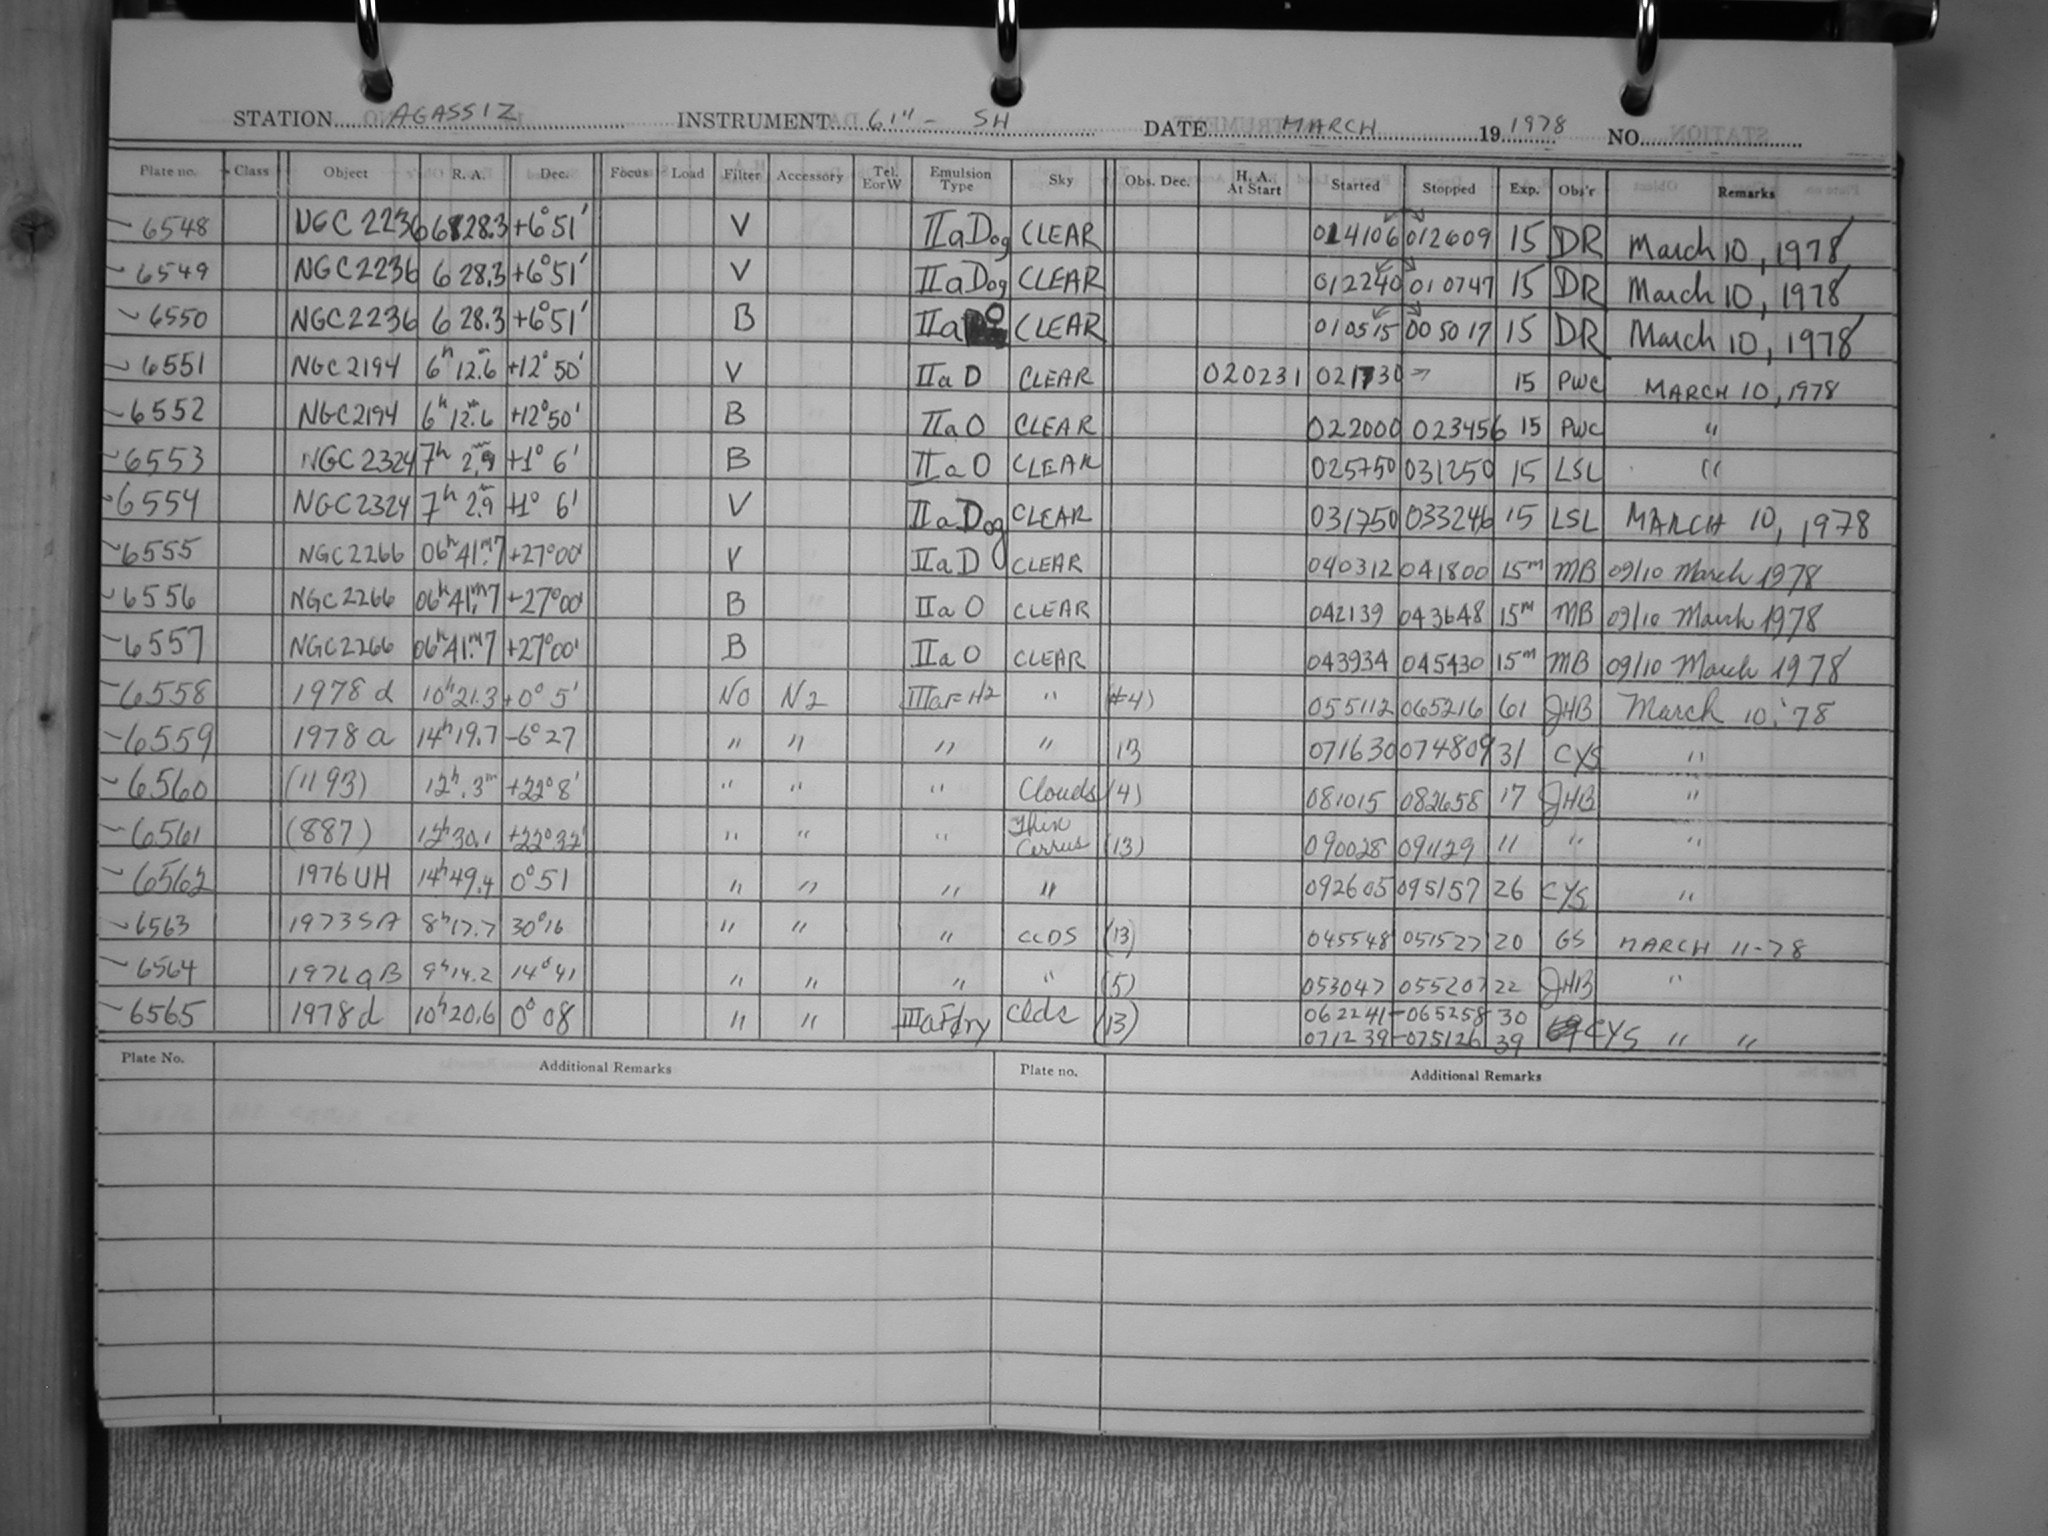 STATION AGASSIZ INSTRUMENT 61" - SH DATE MARCH 19 1978 NO.
Plate no. Class Object R. A. Dec. Focus Load Filter Accessory Tel. E or W Emulsion Type Sky Obs. Dec. H. A. At Start Started Stopped Exp. Obs'r Remarks
6548 NGC 2236 6 28.3 +6°51' V IIaDog CLEAR 014106 012609 15 DR March 10, 1978
6549 NGC2236 6 28.3 +6°51' V IIaDog CLEAR 012240 010747 15 DR March 10, 1978
6550 NGC2236 6 28.3 +6°51' B IIaO CLEAR 010515 005017 15 DR March 10, 1978
6551 NGC2194 6h 12.6m +12° 50' V IIaD CLEAR 020231 021730 15 PWC MARCH 10, 1978
6552 NGC2194 6h 12.6m +12°50' B IIaO CLEAR 022000 023456 15 PWC "
6553 NGC2324 7h 2.9m +1° 6' B IIaO CLEAR 025750 031250 15 LSL "
6554 NGC2324 7h 2.9m +1° 6' V IIaDog CLEAR 031750 033246 15 LSL MARCH 10, 1978
6555 NGC2266 06h41m.7 +27°00' V IIaD CLEAR 040312 041800 15m MB 09/10 March 1978
6556 NGC2266 06h41m.7 +27°00' B IIaO CLEAR 042139 043648 15m MB 09/10 March 1978
6557 NGC2266 06h41m.7 +27°00' B IIaO CLEAR 043934 045430 15m MB 09/10 March 1978
6558 1978 d 10h21.3 +0° 5' NO N2 IIIaF H2 " (#4) 055112 065216 61 JHB March 10, '78
6559 1978 a 14h19.7 -6° 27 " " " " 13 071630 074809 31 CYS "
6560 (1193) 12h.3m +22°8' " " " Clouds (4) 081015 082658 17 JHB "
6561 (887) 12h30.1 +22°32' " " " Thin Cirrus (13) 090028 091129 11 " "
6562 1976 UH 14h49.4 0°51 " " " " 092605 095157 26 CYS "
6563 1973 SA 8h17.7 30°16 " " " CLDS (13) 045548 051527 20 GS MARCH 11-78
6564 1976 QB 9h14.2 14°41 " " " " (5) 053047 055207 22 JHB "
6565 1978d 10h20.6 0° 08 " " IIIaFdry Clds (13) 062241-065258 30
071239-075126 39 CYS " "
Plate No. Additional Remarks Plate no. Additional Remarks